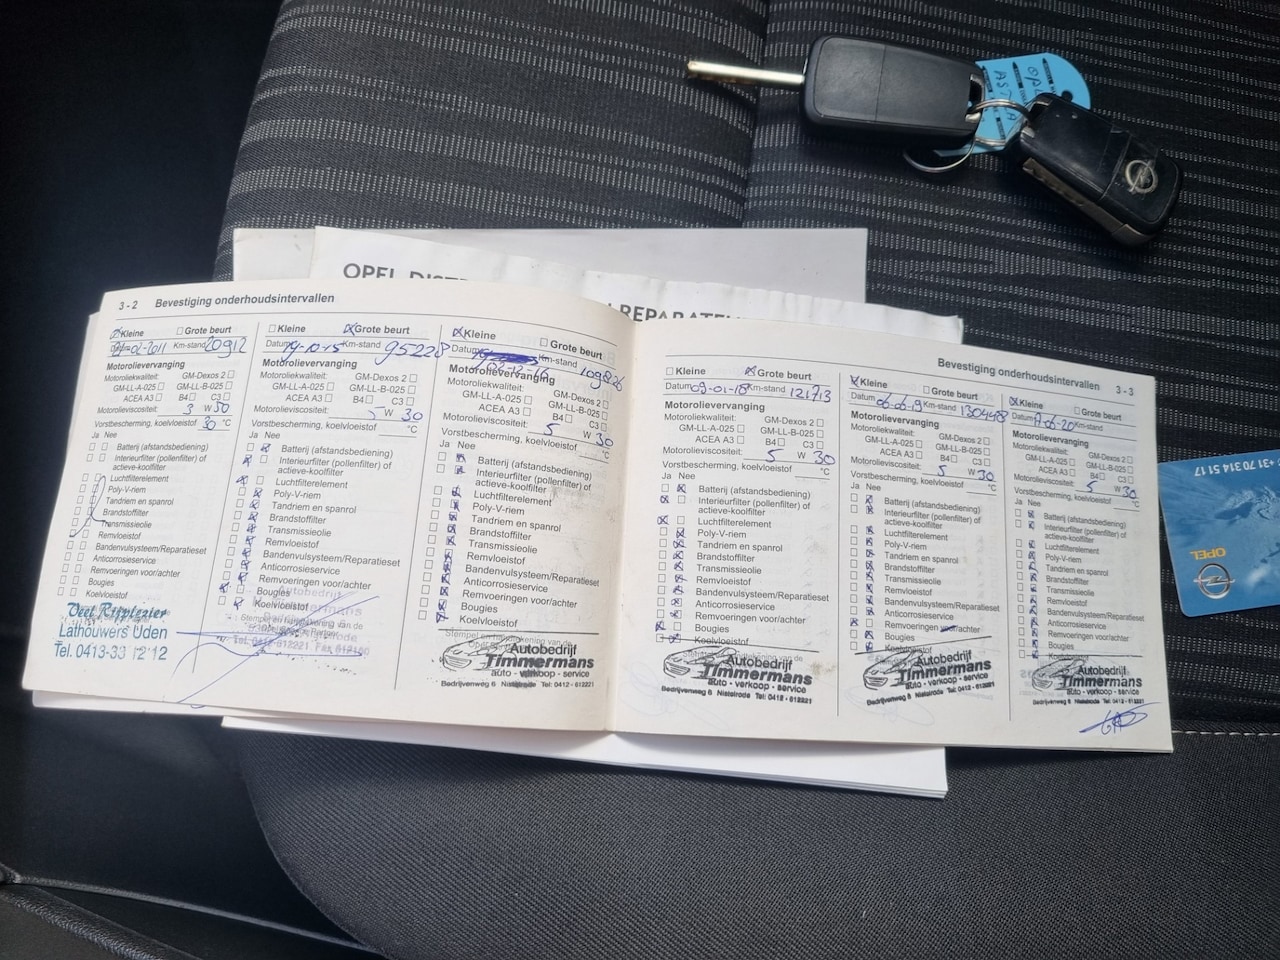 OPEL
ASTRA
3 - 2 Bevestiging onderhoudsintervallen
Kleine Grote beurt
Datum -02-2011 Km-stand 20912
Motorolievervanging
Motoroliekwaliteit: GM-Dexos 2
GM-LL-A-025 GM-LL-B-025
ACEA A3 B4 C3
Motorolieviscositeit: 5 W 30
Vorstbescherming, koelvloeistof 30 °C
Ja Nee
Batterij (afstandsbediening)
Interieurfilter (pollenfilter) of
actieve-koolfilter
Luchtfilterelement
Poly-V-riem
Tandriem en spanrol
Brandstoffilter
Transmissieolie
Remvloeistof
Bandenvulsysteem/Reparatieset
Anticorrosieservice
Remvoeringen voor/achter
Bougies
Koelvloeistof
Lathouwers Uden
Tel. 0413-33 12 12
Kleine Grote beurt
Datum 19-10-15 Km-stand 95228
Motorolievervanging
Motoroliekwaliteit: GM-Dexos 2
GM-LL-A-025 GM-LL-B-025
ACEA A3 B4 C3
Motorolieviscositeit: 5 W 30
Vorstbescherming, koelvloeistof °C
Ja Nee
Batterij (afstandsbediening)
Interieurfilter (pollenfilter) of
actieve-koolfilter
Luchtfilterelement
Poly-V-riem
Tandriem en spanrol
Brandstoffilter
Transmissieolie
Remvloeistof
Bandenvulsysteem/Reparatieset
Anticorrosieservice
Remvoeringen voor/achter
Bougies
Koelvloeistof
Kleine Grote beurt
Datum -12-16 Km-stand 109826
Motorolievervanging
Motoroliekwaliteit: GM-Dexos 2
GM-LL-A-025 GM-LL-B-025
ACEA A3 B4 C3
Motorolieviscositeit: 5 W 30
Vorstbescherming, koelvloeistof °C
Ja Nee
Batterij (afstandsbediening)
Interieurfilter (pollenfilter) of
actieve-koolfilter
Luchtfilterelement
Poly-V-riem
Tandriem en spanrol
Brandstoffilter
Transmissieolie
Remvloeistof
Bandenvulsysteem/Reparatieset
Anticorrosieservice
Remvoeringen voor/achter
Bougies
Koelvloeistof
Autobedrijf
Timmermans
auto - verkoop - service
Bedrijvenweg 6 Nistelrode Tel: 0412 - 612221
Bevestiging onderhoudsintervallen 3 - 3
Kleine Grote beurt
Datum 09-01-18 Km-stand 121713
Motorolievervanging
Motoroliekwaliteit: GM-Dexos 2
GM-LL-A-025 GM-LL-B-025
ACEA A3 B4 C3
Motorolieviscositeit: 5 W 30
Vorstbescherming, koelvloeistof °C
Ja Nee
Batterij (afstandsbediening)
Interieurfilter (pollenfilter) of
actieve-koolfilter
Luchtfilterelement
Poly-V-riem
Tandriem en spanrol
Brandstoffilter
Transmissieolie
Remvloeistof
Bandenvulsysteem/Reparatieset
Anticorrosieservice
Remvoeringen voor/achter
Bougies
Koelvloeistof
Autobedrijf
Timmermans
auto - verkoop - service
Bedrijvenweg 6 Nistelrode Tel: 0412 - 612221
Kleine Grote beurt
Datum 06-06-19 Km-stand 130448
Motorolievervanging
Motoroliekwaliteit: GM-Dexos 2
GM-LL-A-025 GM-LL-B-025
ACEA A3 B4 C3
Motorolieviscositeit: 5 W 30
Vorstbescherming, koelvloeistof °C
Ja Nee
Batterij (afstandsbediening)
Interieurfilter (pollenfilter) of
actieve-koolfilter
Luchtfilterelement
Poly-V-riem
Tandriem en spanrol
Brandstoffilter
Transmissieolie
Remvloeistof
Bandenvulsysteem/Reparatieset
Anticorrosieservice
Remvoeringen voor/achter
Bougies
Koelvloeistof
Autobedrijf
Timmermans
auto - verkoop - service
Bedrijvenweg 6 Nistelrode Tel: 0412 - 612221
Kleine Grote beurt
Datum -06-20 Km-stand
Motorolievervanging
Motoroliekwaliteit: GM-Dexos 2
GM-LL-A-025 GM-LL-B-025
ACEA A3 B4 C3
Motorolieviscositeit: 5 W 30
Vorstbescherming, koelvloeistof °C
Ja Nee
Batterij (afstandsbediening)
Interieurfilter (pollenfilter) of
actieve-koolfilter
Luchtfilterelement
Poly-V-riem
Tandriem en spanrol
Brandstoffilter
Transmissieolie
Remvloeistof
Bandenvulsysteem/Reparatieset
Anticorrosieservice
Remvoeringen voor/achter
Bougies
Koelvloeistof
Autobedrijf
Timmermans
auto - verkoop - service
Bedrijvenweg 6 Nistelrode Tel: 0412 - 612221
+31 70 314 51 17
OPEL